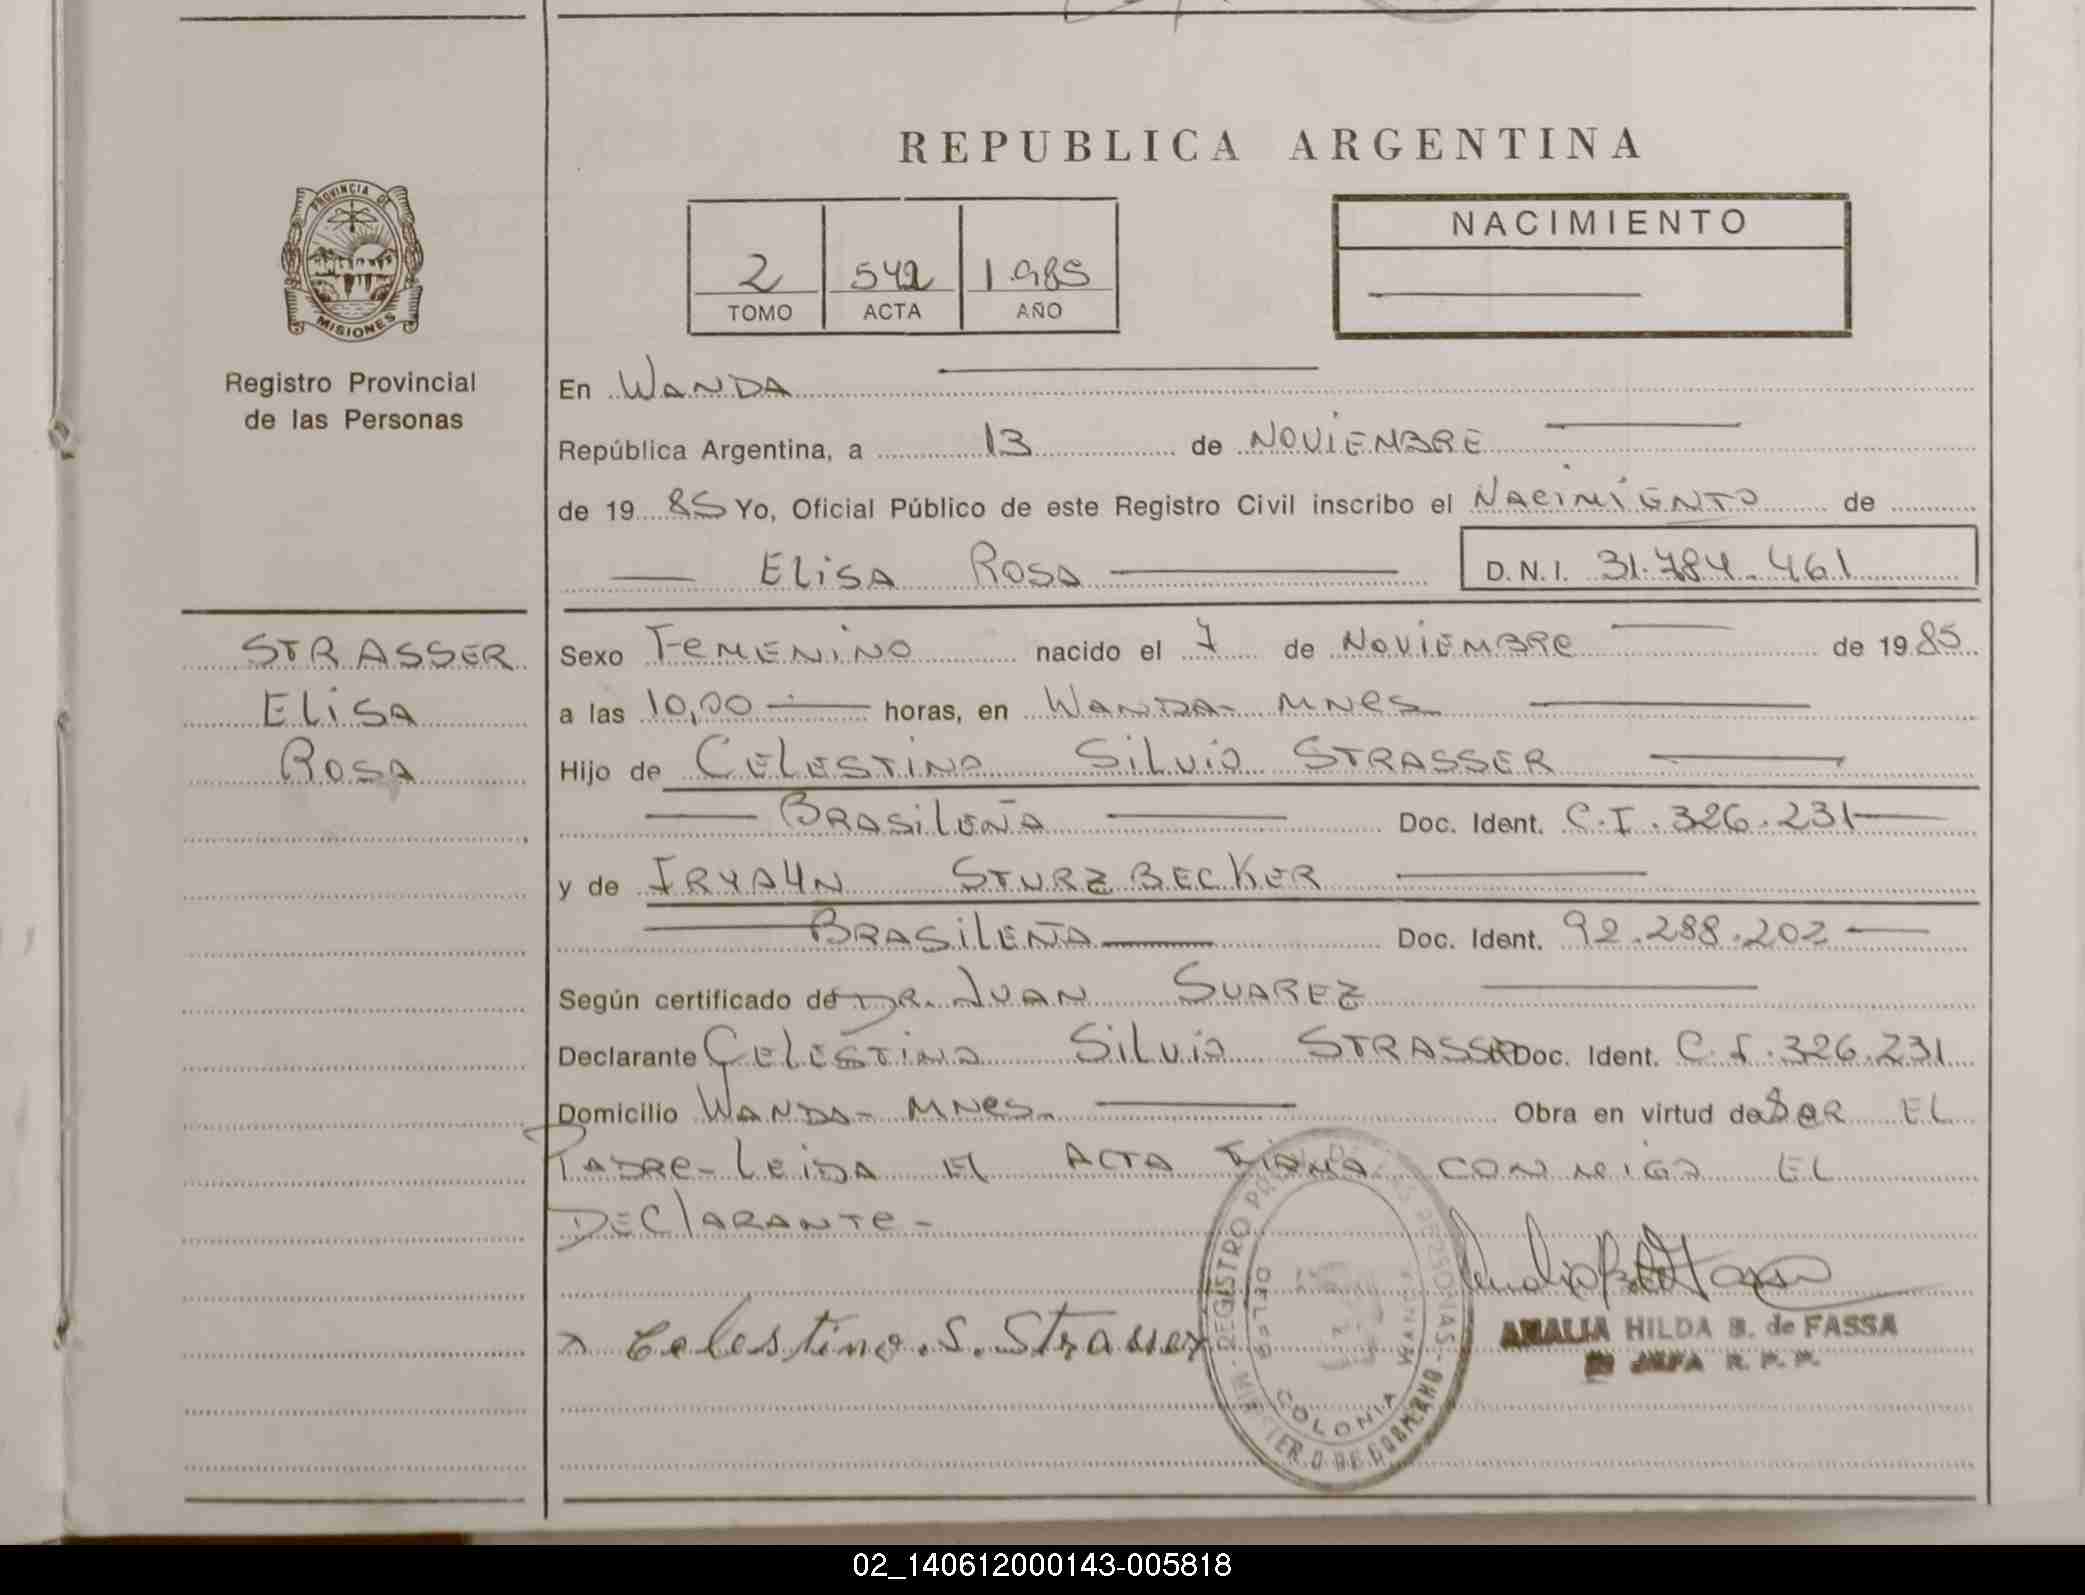 REPUBLICA ARGENTINA
PROVINCIA DE MISIONES
Registro Provincial
de las Personas
2 542 1985
TOMO ACTA AÑO
NACIMIENTO
En WANDA
República Argentina, a 13 de NOVIEMBRE
de 19 85 Yo, Oficial Público de este Registro Civil inscribo el NACIMIENTO de
ELISA ROSA D.N.I. 31.784.461
STRASSER
ELISA
ROSA
Sexo FEMENINO nacido el 7 de NOVIEMBRE de 19 85
a las 10,00 horas, en WANDA- MNES
Hijo de CELESTINO SILVIO STRASSER
BRASILEÑA Doc. Ident. C.I. 326.231
y de STURZBECKER
BRASILEÑA Doc. Ident. 92.288.202
Según certificado de DR. JUAN SUAREZ
Declarante CELESTINO SILVIO STRASSER Doc. Ident. C.I. 326.231
Domicilio WANDA- MNES. Obra en virtud de SER EL
PADRE- LEIDA EL ACTA FIRMA CONMIGO EL
DECLARANTE-
x Celestino. S. Strasser
REGISTRO PERSONAS - MINISTERIO DE GOBIERNO
COLONIA WANDA
AMALIA HILDA B. de FASSA
JEFA R. P. P.
02_140612000143-005818